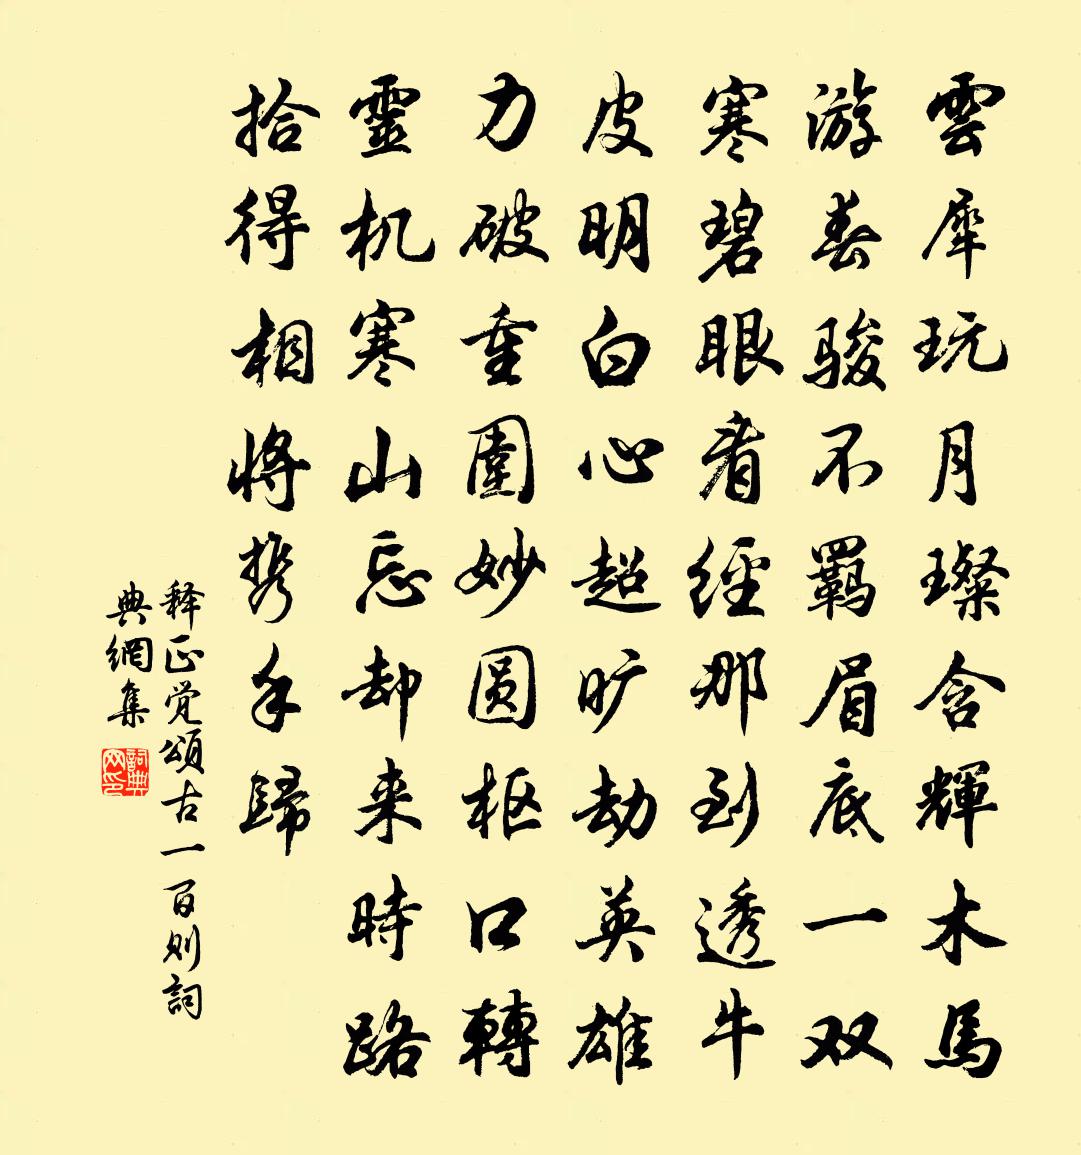 雲犀玩月璨含輝木馬
游春骏不羈眉底一双
寒碧眼看經那到透牛
皮明白心超旷劫英雄
力破重圍妙圆枢口轉
靈机寒山忘却来時路
拾得相將携手歸
释正觉頌古一百则詞
典網集
詞典网印